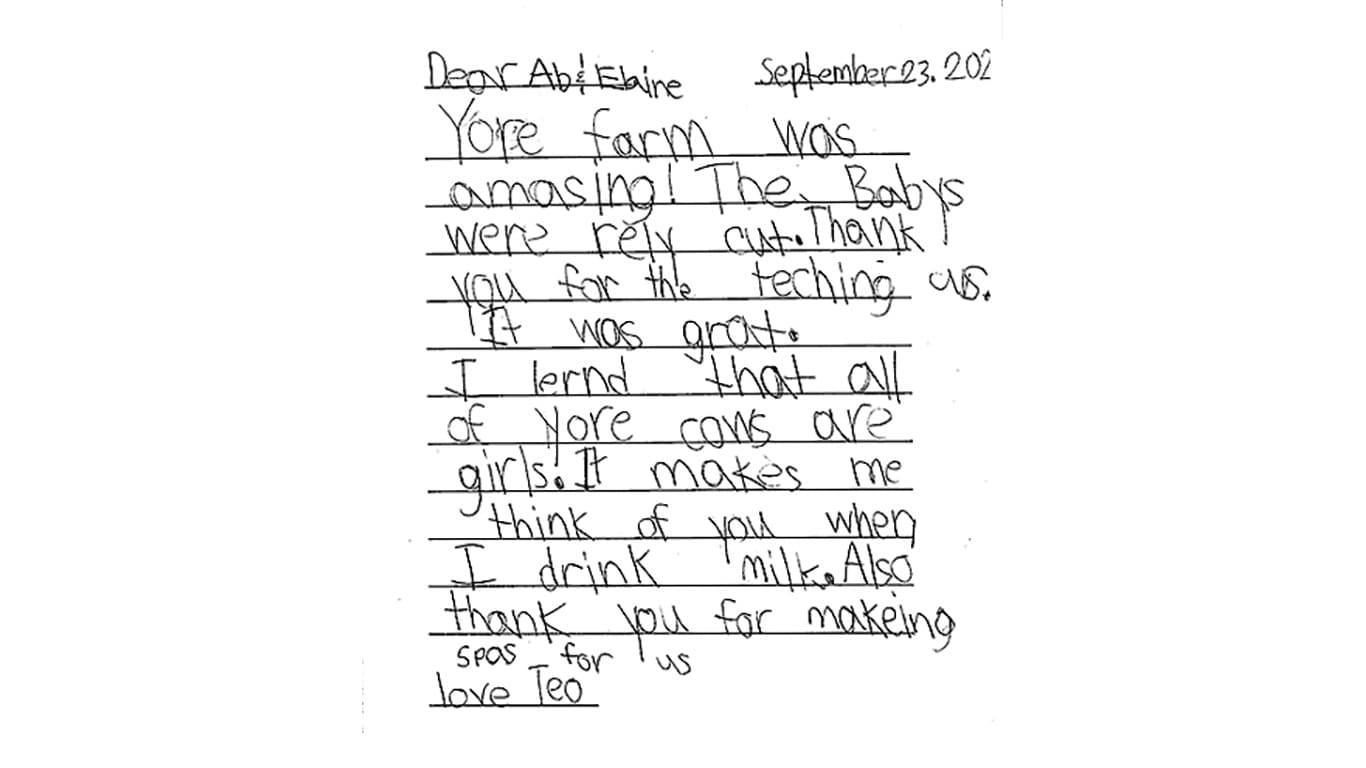 Dear Ab & Elaine September 23. 202
Yore farm was
amasing! The Babys
were rely cut. Thank
you for the teching us.
It was grat.
I lernd that all
of yore cows are
girls. It makes me
think of you when
I drink milk. Also
thank you for makeing
spas for us
love Teo